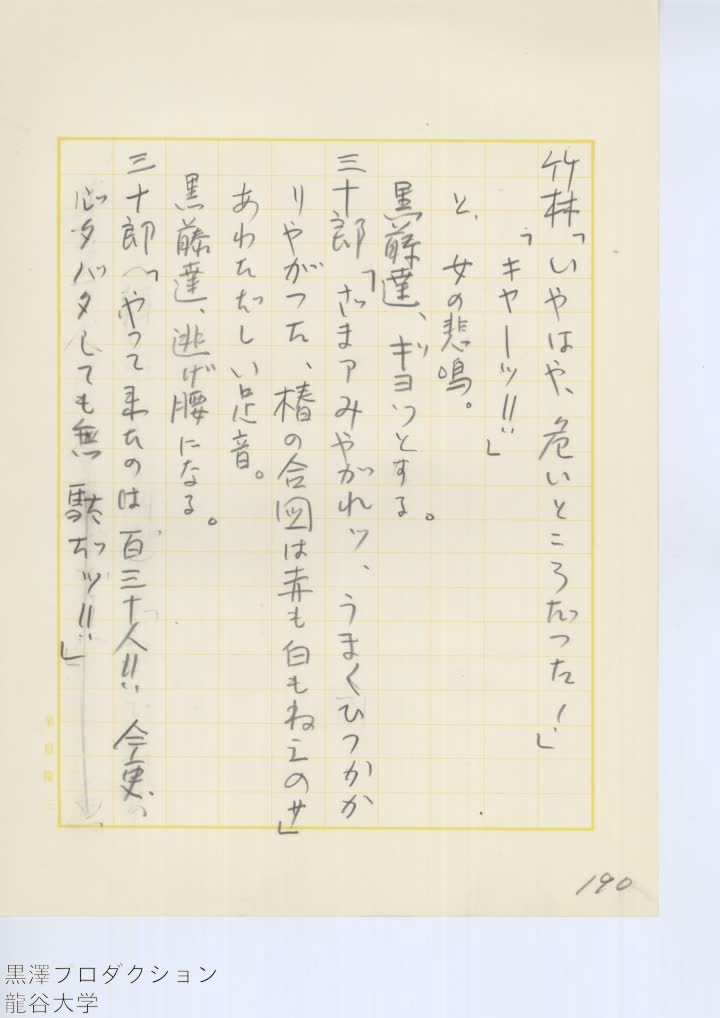 竹林「いやはや、危いところだった！」
「キャーッ!!」
と、女の悲鳴。
黒藤達、ギョッとする。
三十郎「ざまァみやがれッ、うまくひっかか
りやがった、椿の合図は赤も白もねエのサ」
あわただしい足音。
黒藤達、逃げ腰になる。
三十郎「やって来たのは百三十人!!　今更、
ジタバタしても無駄だッ!!」
190
黒澤プロダクション
龍谷大学